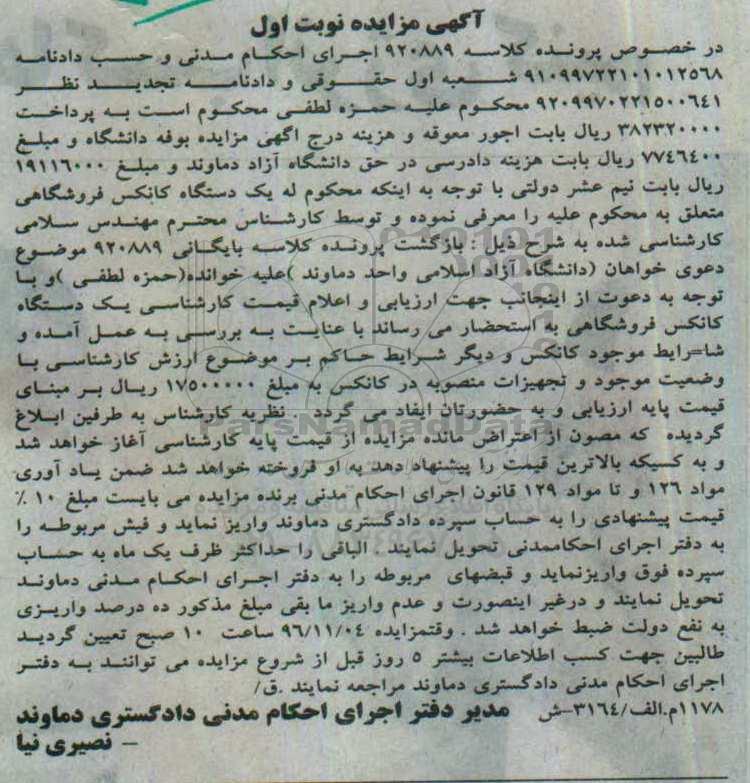 آگهی مزایده نوبت اول
در خصوص پرونده کلاسه ۹۲۰۸۸۹ اجرای احکام مدنی و حسب دادنامه
۹۱۰۹۹۷۲۲۱۰۱۰۱۲۵۶۸ شعبه اول حقوقی و دادنامه تجدید نظر
۹۲۰۹۹۷۰۲۲۱۵۰۰۶٤۱ محکوم علیه حمزه لطفی محکوم است به پرداخت
۳۸۲۳۲۰۰۰۰ ریال بابت اجور معوقه و هزینه درج اگهی مزایده بوفه دانشگاه و مبلغ
۷۷٤٦٤۰۰ ریال بابت هزینه دادرسی در حق دانشگاه آزاد دماوند و مبلغ ۱۹۱۱٦۰۰۰
ریال بابت نیم عشر دولتی با توجه به اینکه محکوم له یک دستگاه کانکس فروشگاهی
متعلق به محکوم علیه را معرفی نموده و توسط کارشناس محترم مهندس سلامی
کارشناسی شده به شرح ذیل : بازگشت پرونده کلاسه بایگانی ۹۲۰۸۸۹ موضوع
دعوی خواهان (دانشگاه آزاد اسلامی واحد دماوند )علیه خوانده(حمزه لطفی )و با
توجه به دعوت از اینجانب جهت ارزیابی و اعلام قیمت کارشناسی یک دستگاه
کانکس فروشگاهی به استحضار می رساند با عنایت به بررسی به عمل آمده و
شا=رایط موجود کانکس و دیگر شرایط حاکم بر موضوع ارزش کارشناسی با
وضعیت موجود و تجهیزات منصوبه در کانکس به مبلغ ۱۷۵۰۰۰۰۰ ریال بر مبنای
قیمت پایه ارزیابی و به حضورتان ایفاد می گردد . نظریه کارشناس به طرفین ابلاغ
گردیده که مصون از اعتراض مانده مزایده از قیمت پایه کارشناسی آغاز خواهد شد
و به کسیکه بالاترین قیمت را پیشنهاد دهد به او فروخته خواهد شد ضمن یاد آوری
مواد ۱۲٦ و تا مواد ۱۲۹ قانون اجرای احکام مدنی برنده مزایده می بایست مبلغ ۱۰ ٪
قیمت پیشنهادی را به حساب سپرده دادگستری دماوند واریز نماید و فیش مربوطه را
به دفتر اجرای احکاممدنی تحویل نمایند . الباقی را حداکثر ظرف یک ماه به حساب
سپرده فوق واریزنماید و قبضهای مربوطه را به دفتر اجرای احکام مدنی دماوند
تحویل نمایند و درغیر اینصورت و عدم واریز ما بقی مبلغ مذکور ده درصد واریزی
به نفع دولت ضبط خواهد شد . وقتمزایده ۹٦/۱۱/۰٤ ساعت ۱۰ صبح تعیین گردید
طالبین جهت کسب اطلاعات بیشتر ۵ روز قبل از شروع مزایده می توانند به دفتر
اجرای احکام مدنی دادگستری دماوند مراجعه نمایند .ق/
۱۱۷۸م.الف/۳۱٦٤-ش مدیر دفتر اجرای احکام مدنی دادگستری دماوند
– نصیری نیا
ParsNamadData